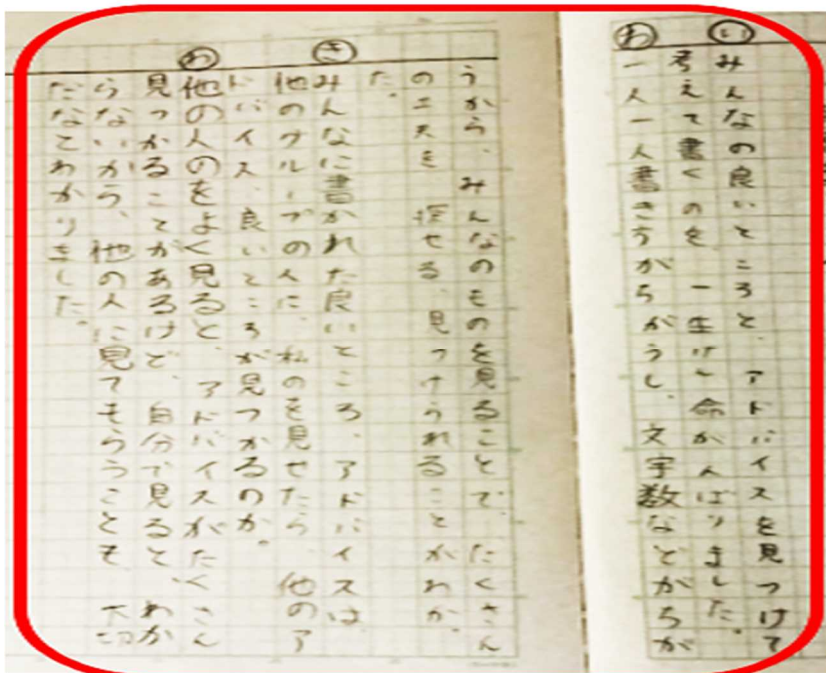 い みんなの良いところと、アドバイスを見つけて
考えて書くのを一生けん命がんばりました。
わ 一人一人書き方がちがうし、文字数などがちが
うから、みんなのものを見ることで、たくさん
の工夫を探せる、見つけられることがわかっ
た。
き みんなに書かれた良いところ、アドバイスは、
他のグループの人に、私のを見せたら、他のア
ドバイス、良いところが見つかるのか。
わ 他の人のをよく見ると、アドバイスがたくさん
見つかることがあるけど、自分で見ると、わか
らないから、他の人に見てもらうことも大切
だなとわかりました。